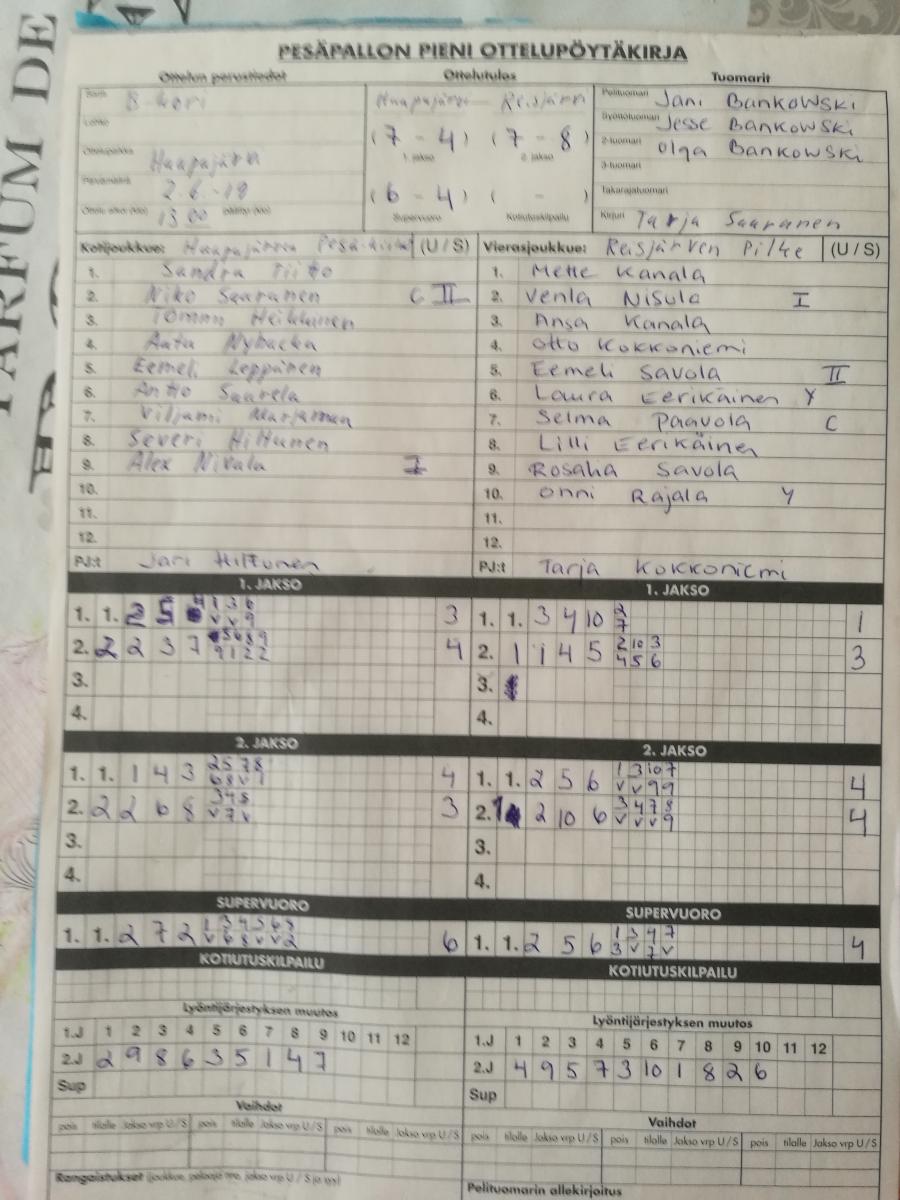 PARFUM DE
PESÄPALLON PIENI OTTELUPÖYTÄKIRJA
Ottelun perustiedot Ottelutulos Tuomarit
Sarja Haapajärvi Reisjärvi Pelituomari Jani Bankowski
Lohko Syöttötuomari Jesse Bankowski
(7 - 4) (7 - 8) 2-tuomari Olga Bankowski
Ottelupaikka Haapajärvi 1. jakso 2. jakso 3-tuomari
Päivämäärä 2.6-19 (6 - 4) ( - ) Takarajatuomari
Ottelu alkoi (klo) 13 00 päättyi (klo) Supervuoro Kotiutuskilpailu Kirjuri Tarja Saaranen
Kotijoukkue: Haapajärven (U / S) Vierasjoukkue: Reisjärven Pilke (U / S)
1. Sandra Tiitto 1. Mette Kanala
2. Niko Saaranen C II 2. Venla Nisula I
3. Tommi Heikkinen 3. Ansa Kanala
4. Aatu Nybacka 4. Otto Kokkoniemi
5. Eemeli Leppänen 5. Eemeli Savola II
6. Antto Saarela 6. Laura Eerikäinen Y
7. Viljami Marjamaa 7. Selma Paavola C
8. Severi Hiltunen 8. Lilli Eerikäinen
9. Alex Nivala I 9. Rosaha Savola
10. 10. Onni Rajala Y
11. 11.
12. 12.
PJ:t Jari Hiltunen PJ:t Tarja Kokkoniemi
1. JAKSO 1. JAKSO
1. 1. 2 5 4 1 3 6 3 1. 1. 3 4 10 2 1
v v 9 7
2. 2 2 3 7 5 6 8 9 4 2. 1 1 4 5 2 10 3 3
9 1 2 2 4 5 6
3. 3.
4. 4.
2. JAKSO 2. JAKSO
1. 1. 1 4 3 2 5 7 8 4 1. 1. 2 5 6 1 3 10 7 4
6 8 v 9 v v 9 9
2. 2 2 6 8 3 4 8 3 2. 1 2 10 6 3 4 7 8 4
v 7 v v v v 9
3. 3.
4. 4.
SUPERVUORO SUPERVUORO
1. 1. 2 7 2 1 3 4 5 6 8 6 1. 1. 2 5 6 1 3 4 7 4
v 6 8 v v 2 3 v 7 v
KOTIUTUSKILPAILU KOTIUTUSKILPAILU
Lyöntijärjestyksen muutos Lyöntijärjestyksen muutos
1.J 1 2 3 4 5 6 7 8 9 10 11 12 1.J 1 2 3 4 5 6 7 8 9 10 11 12
2.J 2 9 8 6 3 5 1 4 7 2.J 4 9 5 7 3 10 1 8 2 6
Sup Sup
Vaihdot Vaihdot
pois tilalle Jakso vrp U / S pois tilalle Jakso vrp U / S pois tilalle Jakso vrp U / S pois tilalle Jakso vrp U / S pois tilalle Jakso vrp U / S pois tilalle Jakso vrp U / S
Rangaistukset (joukkue, pelaaja nro, jakso vrp U / S ja syy) Pelituomarin allekirjoitus